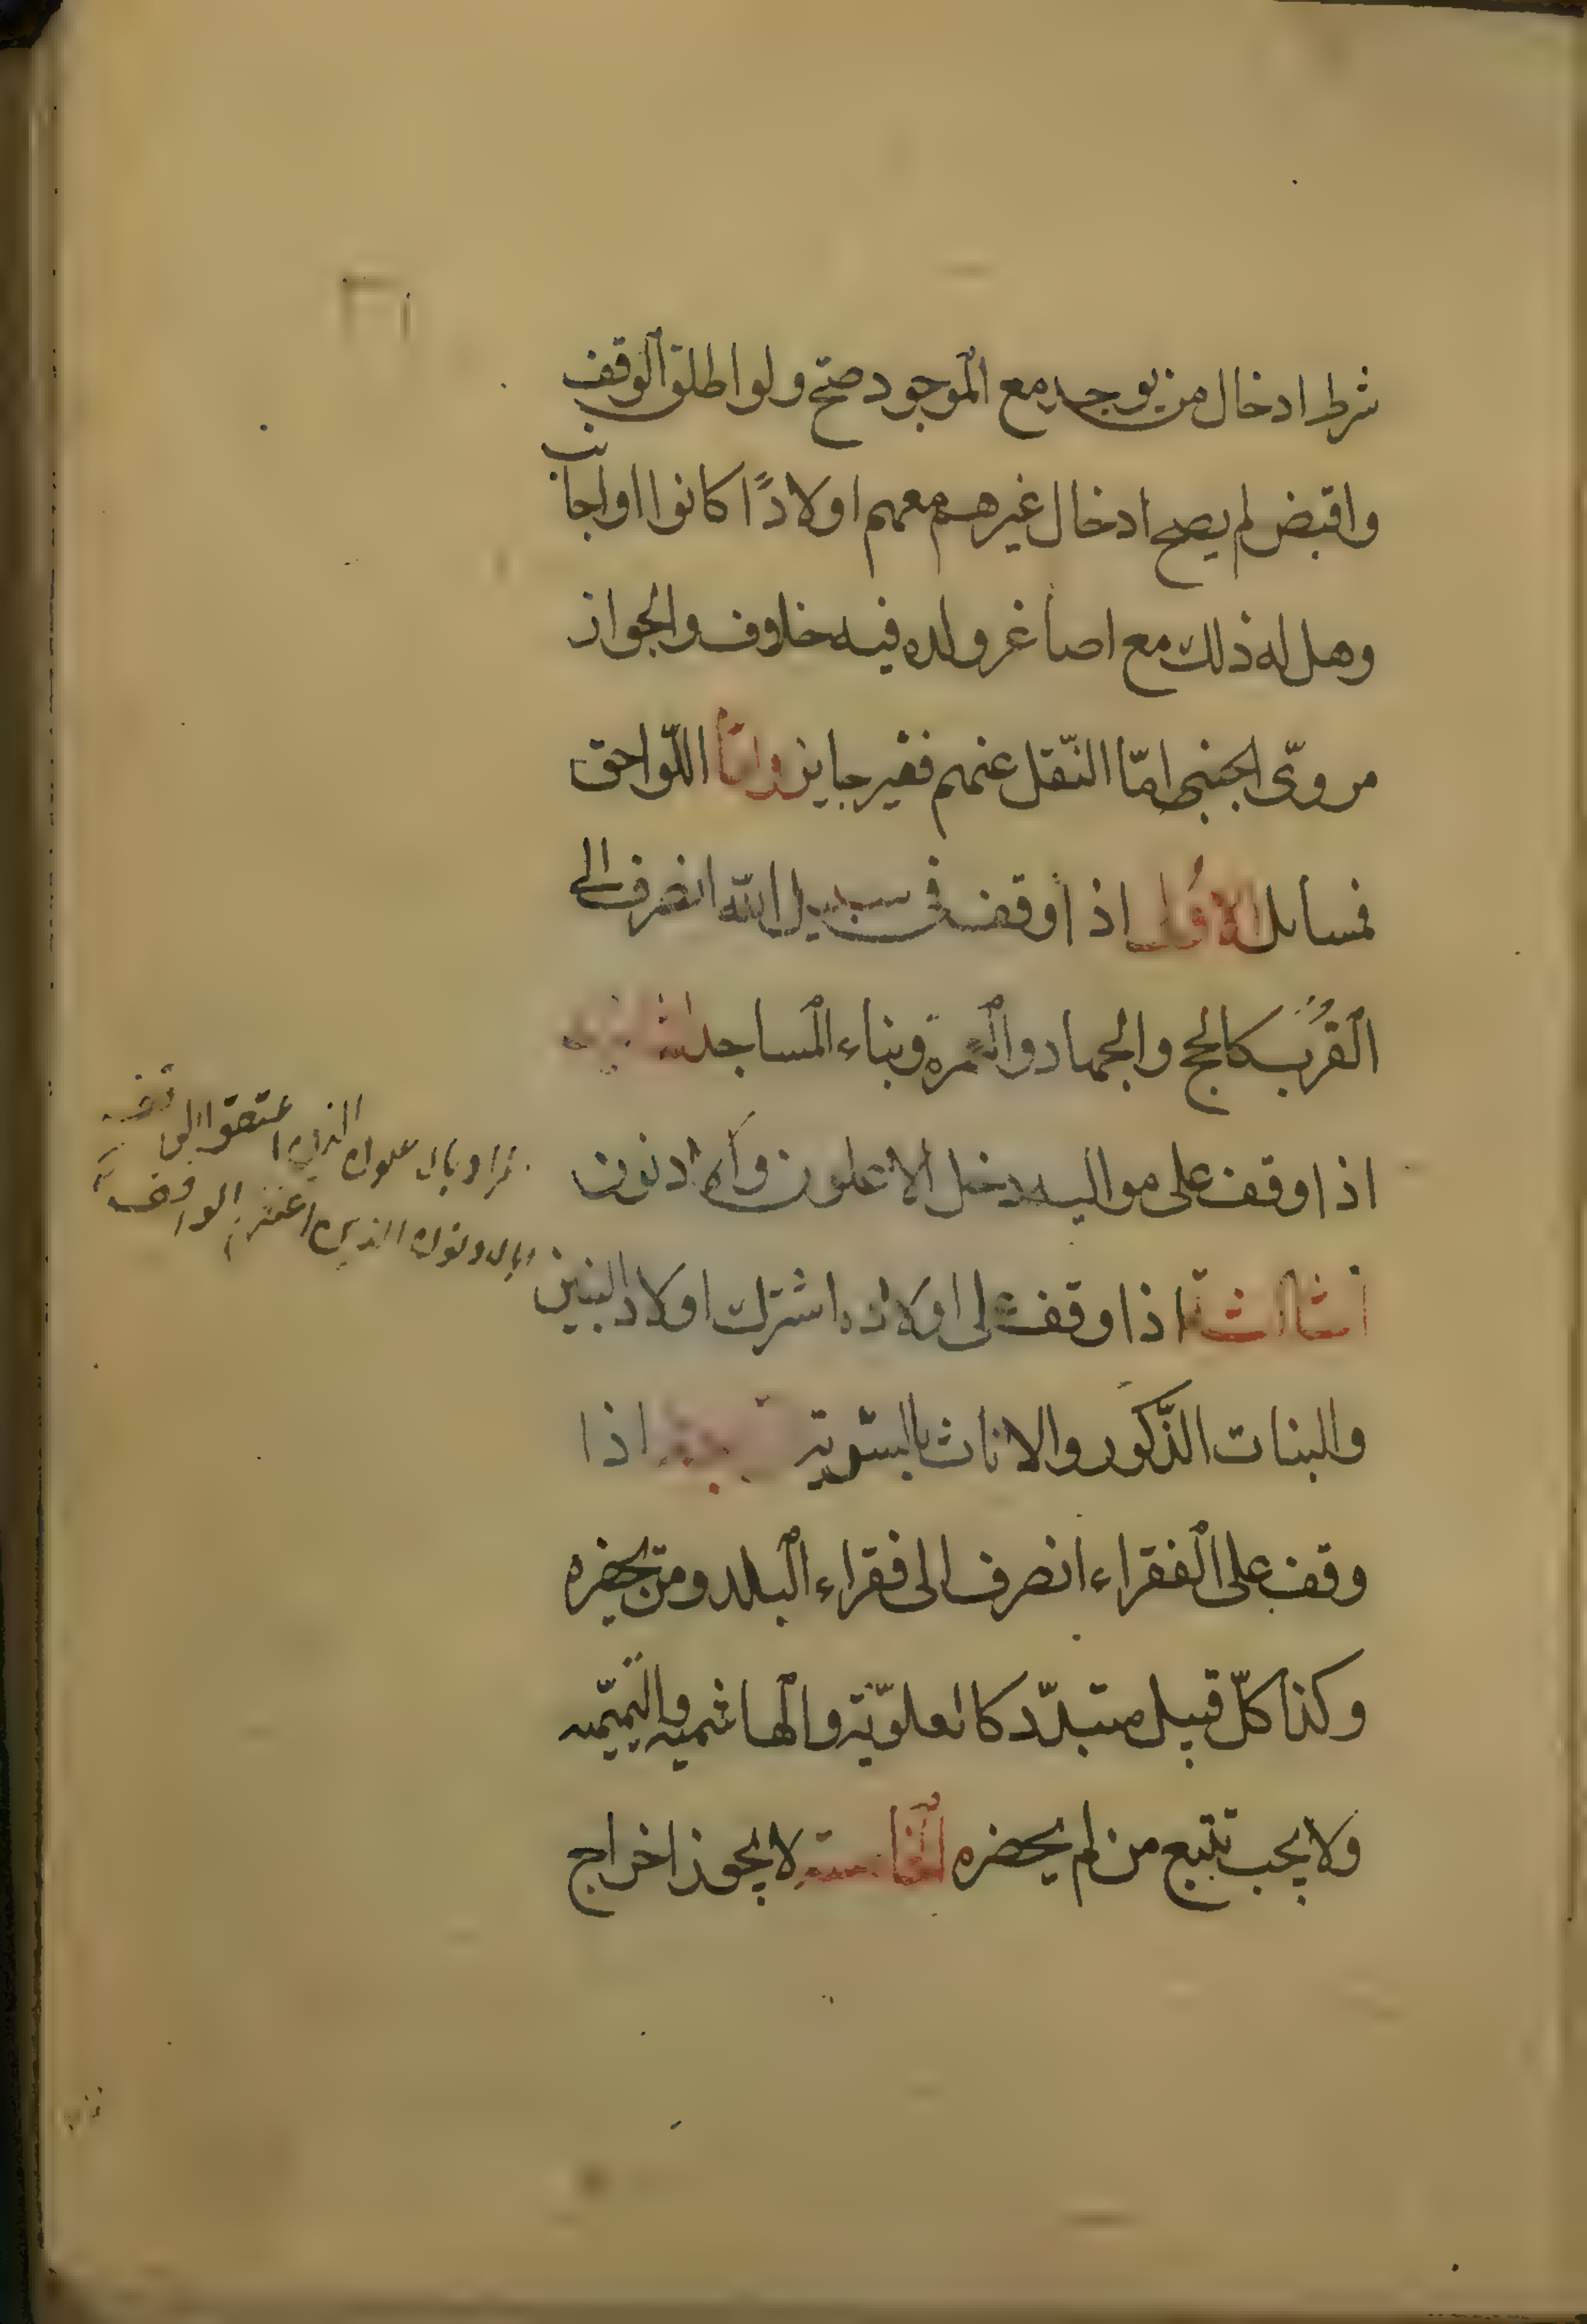 شرط ادخال من يوجد مع الموجود صحّ ولو اطلق الوقف
واقبض لم يصح ادخال غيرهم معهم اولادًا كانوا او اجانب
وهل له ذلك مع اصاغر ولده فيه خلاف والجواز
مروىّ امّا النّقل عنهم فغير جايز وامّا اللّواحق
فمسائل الاولى اذا وقف فى سبيل الله انصرف الى
القُرَب كالحج والجهاد والعمرة وبناء المساجد الثانية
اذا وقف على مواليه دخل الاعلون والادنون
الثالثة اذا وقف على اولاده اشترك اولاد البنين
والبنات الذّكور والاناث بالسّوية الرابعة اذا
وقف على الفقراء انصرف الى فقراء البلد ومن يحضره
وكذا كلّ قبيل متبدّد كالعلويّة والهاشميه والتميميه
ولا يجب تتبع من لم يحضره الخامسة لا يجوز اخراج
الذين اعتقوا الواقف
الذين الواقف